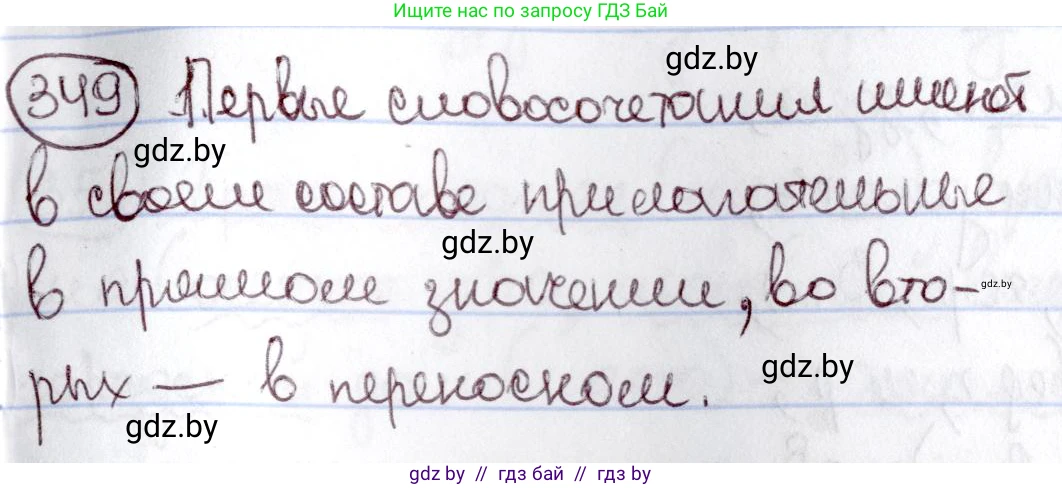 Ищите нас по запросу ГДЗ Бай
349 Первые словосочетания имеют
gdz.by
gdz.by
в своем составе прилагательные
gdz.by
в прямом значении, во вто-
gdz.by
gdz.by
рых — в переносном.
gdz.by
gdz by // гдз бай // гдз by